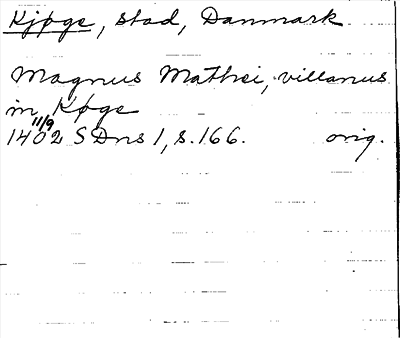 Kjøge, stad, Danmark
Magnus Mathei, villanus
in Køge
11/9
1402 SDns 1, s. 166. orig.